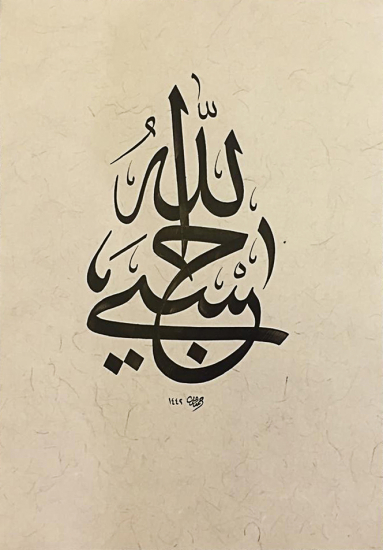 حسبي الله
١٤٤٢